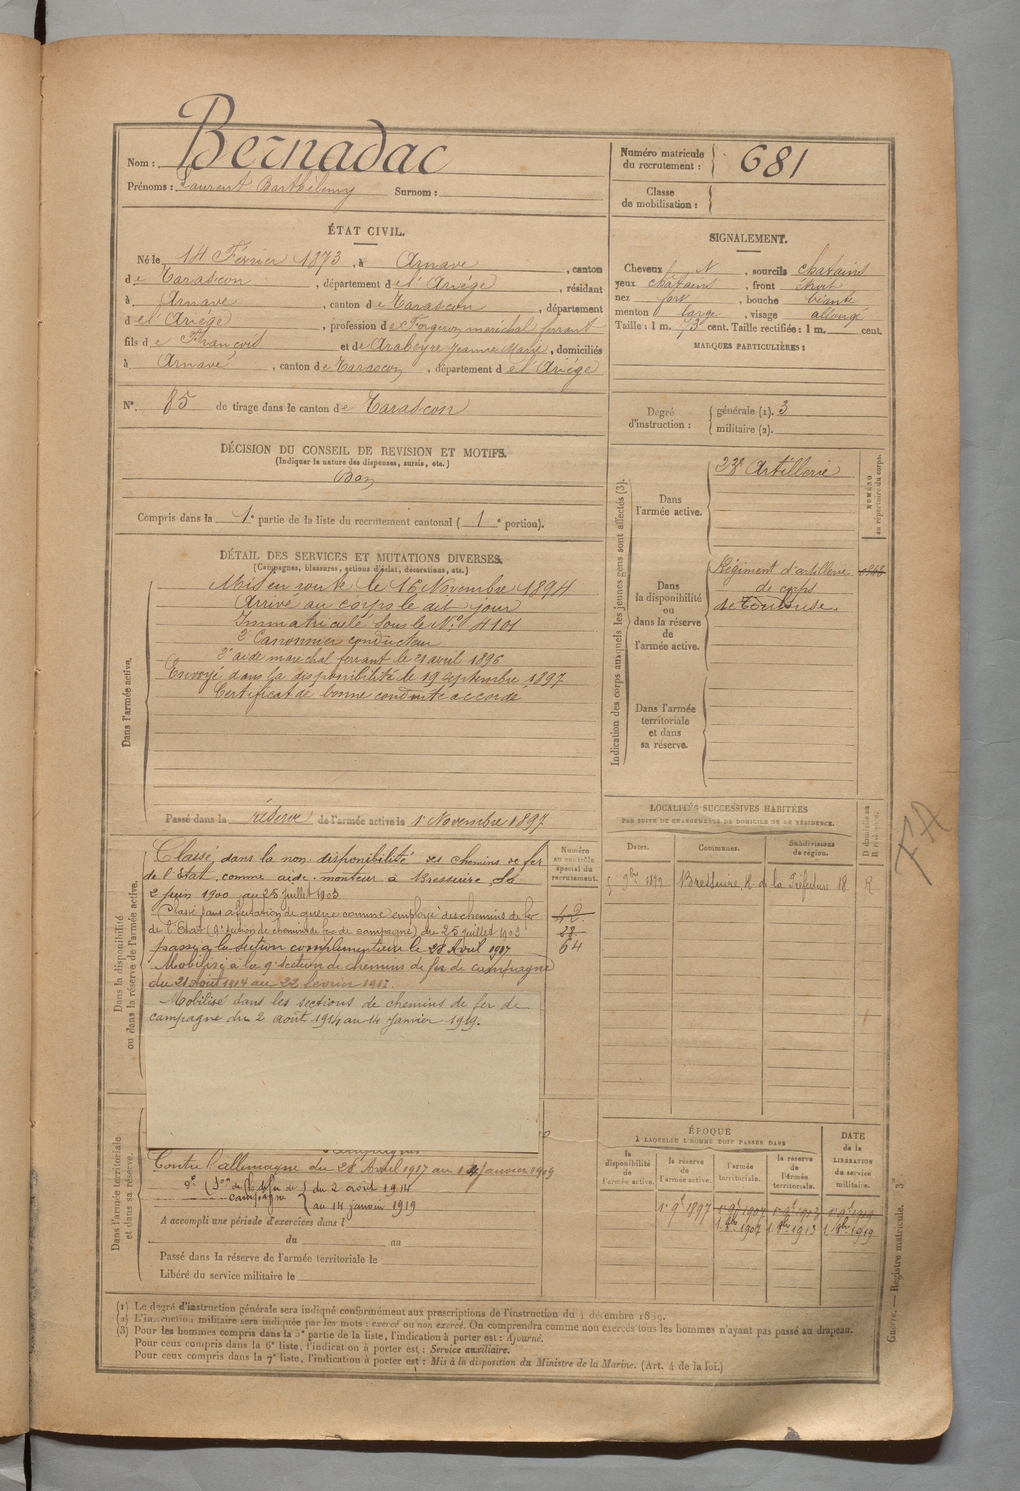 Nom : Bernadac
Prénoms : Laurent Barthélemy Surnom :
Numéro matricule du recrutement : 681
Classe de mobilisation :
ÉTAT CIVIL.
Né le 14 Février 1873, à Arnave, canton
de Tarascon, département de l'Ariége, résidant
à Arnave, canton de Tarascon, département
de l'Ariége, profession de Forgeron maréchal ferrant
fils de François et de Arabeyre Jeanne Mary, domiciliés
à Arnave, canton de Tarascon, département de l'Ariége
N°. 85 de tirage dans le canton de Tarascon
SIGNALEMENT.
Cheveux N, sourcils chatains
yeux chatains, front étroit
nez fort, bouche béante
menton large, visage allongé
Taille : 1 m. 73 cent. Taille rectifiée : 1 m. cent.
MARQUES PARTICULIÈRES :
Degré d'instruction : générale (1). 3
militaire (2).
DÉCISION DU CONSEIL DE REVISION ET MOTIFS.
(Indiquer la nature des dispenses, sursis, etc.)
Bon
Compris dans la 1e partie de la liste du recrutement cantonal ( 1e portion).
DÉTAIL DES SERVICES ET MUTATIONS DIVERSES.
(Campagnes, blessures, actions d'éclat, décorations, etc.)
Dans l'armée active.
Mis en route le 16 Novembre 1894
Arrivé au corps le dit jour
Immatriculé sous le N° 4101
2e Canonnier conducteur
2e aide maréchal ferrant le 21 avril 1896
Envoyé dans la disponibilité le 19 Septembre 1897
Certificat de bonne conduite accordé
Passé dans la réserve de l'armée active le 1 Novembre 1897
Indication des corps auxquels les jeunes gens sont affectés (3).
NUMÉRO au répertoire du corps.
Dans l'armée active.
23e Artillerie
Dans la disponibilité ou dans la réserve de l'armée active.
Régiment d'artillerie
de corps
de Toulouse.
Dans l'armée territoriale et dans sa réserve.
LOCALITÉS SUCCESSIVES HABITÉES
PAR SUITE DE CHANGEMENTS DE DOMICILE OU DE RÉSIDENCE.
Dates. Communes. Subdivisions de région. D domicile ou R résidence.
9bre 1899 Bressuire R. de la Préfecture 18 R
FA
Dans la disponibilité ou dans la réserve de l'armée active.
Numéro au contrôle spécial du recrutement.
Classé dans la non disponibilité des chemins de fer
de l'État comme aide-monteur à Bressuire du
2 juin 1900 au 25 juillet 1903
Classé sans affectation de guerre comme employé des chemins de fer
de l'État (9e section de chemins de fer de campagne) du 25 juillet 1903
passé à la section complémentaire le 28 Avril 1917
64
Mobilisé à la 9e section de chemins de fer de campagne
du 21 août 1914 au 22 février 1917.
Mobilisé dans les sections de chemins de fer de
campagne du 2 août 1914 au 14 janvier 1919.
Dans l'armée territoriale et dans sa réserve.
Contre l'allemagne du 28 Avril 1917 au 14 janvier 1919
du 2 août 1914
campagne
au 14 janvier 1919
A accompli une période d'exercices dans l
du au
Passé dans la réserve de l'armée territoriale le
Libéré du service militaire le
ÉPOQUE
À LAQUELLE L'HOMME DOIT PASSER DANS
la disponibilité de l'armée active. la réserve de l'armée active. l'armée territoriale. la réserve de l'armée territoriale. DATE de la LIBÉRATION du service militaire.
1r 9b 1897 1r 9b 1907 1r 9b 1913 1r 9b 1919
1 8bre 1907 1 8bre 1913 1 8bre 1919
(1) Le degré d'instruction générale sera indiqué conformément aux prescriptions de l'instruction du 4 décembre 1889.
(2) L'instruction militaire sera indiquée par les mots : exercé ou non exercé. On comprendra comme non exercés tous les hommes n'ayant pas passé au drapeau.
(3) Pour les hommes compris dans la 5e partie de la liste, l'indication à porter est : Ajourné.
Pour ceux compris dans la 6e liste, l'indication à porter est : Service auxiliaire.
Pour ceux compris dans la 7e liste, l'indication à porter est : Mis à la disposition du Ministre de la Marine. (Art. 4 de la loi.)
Guerre. — Registre matricule.